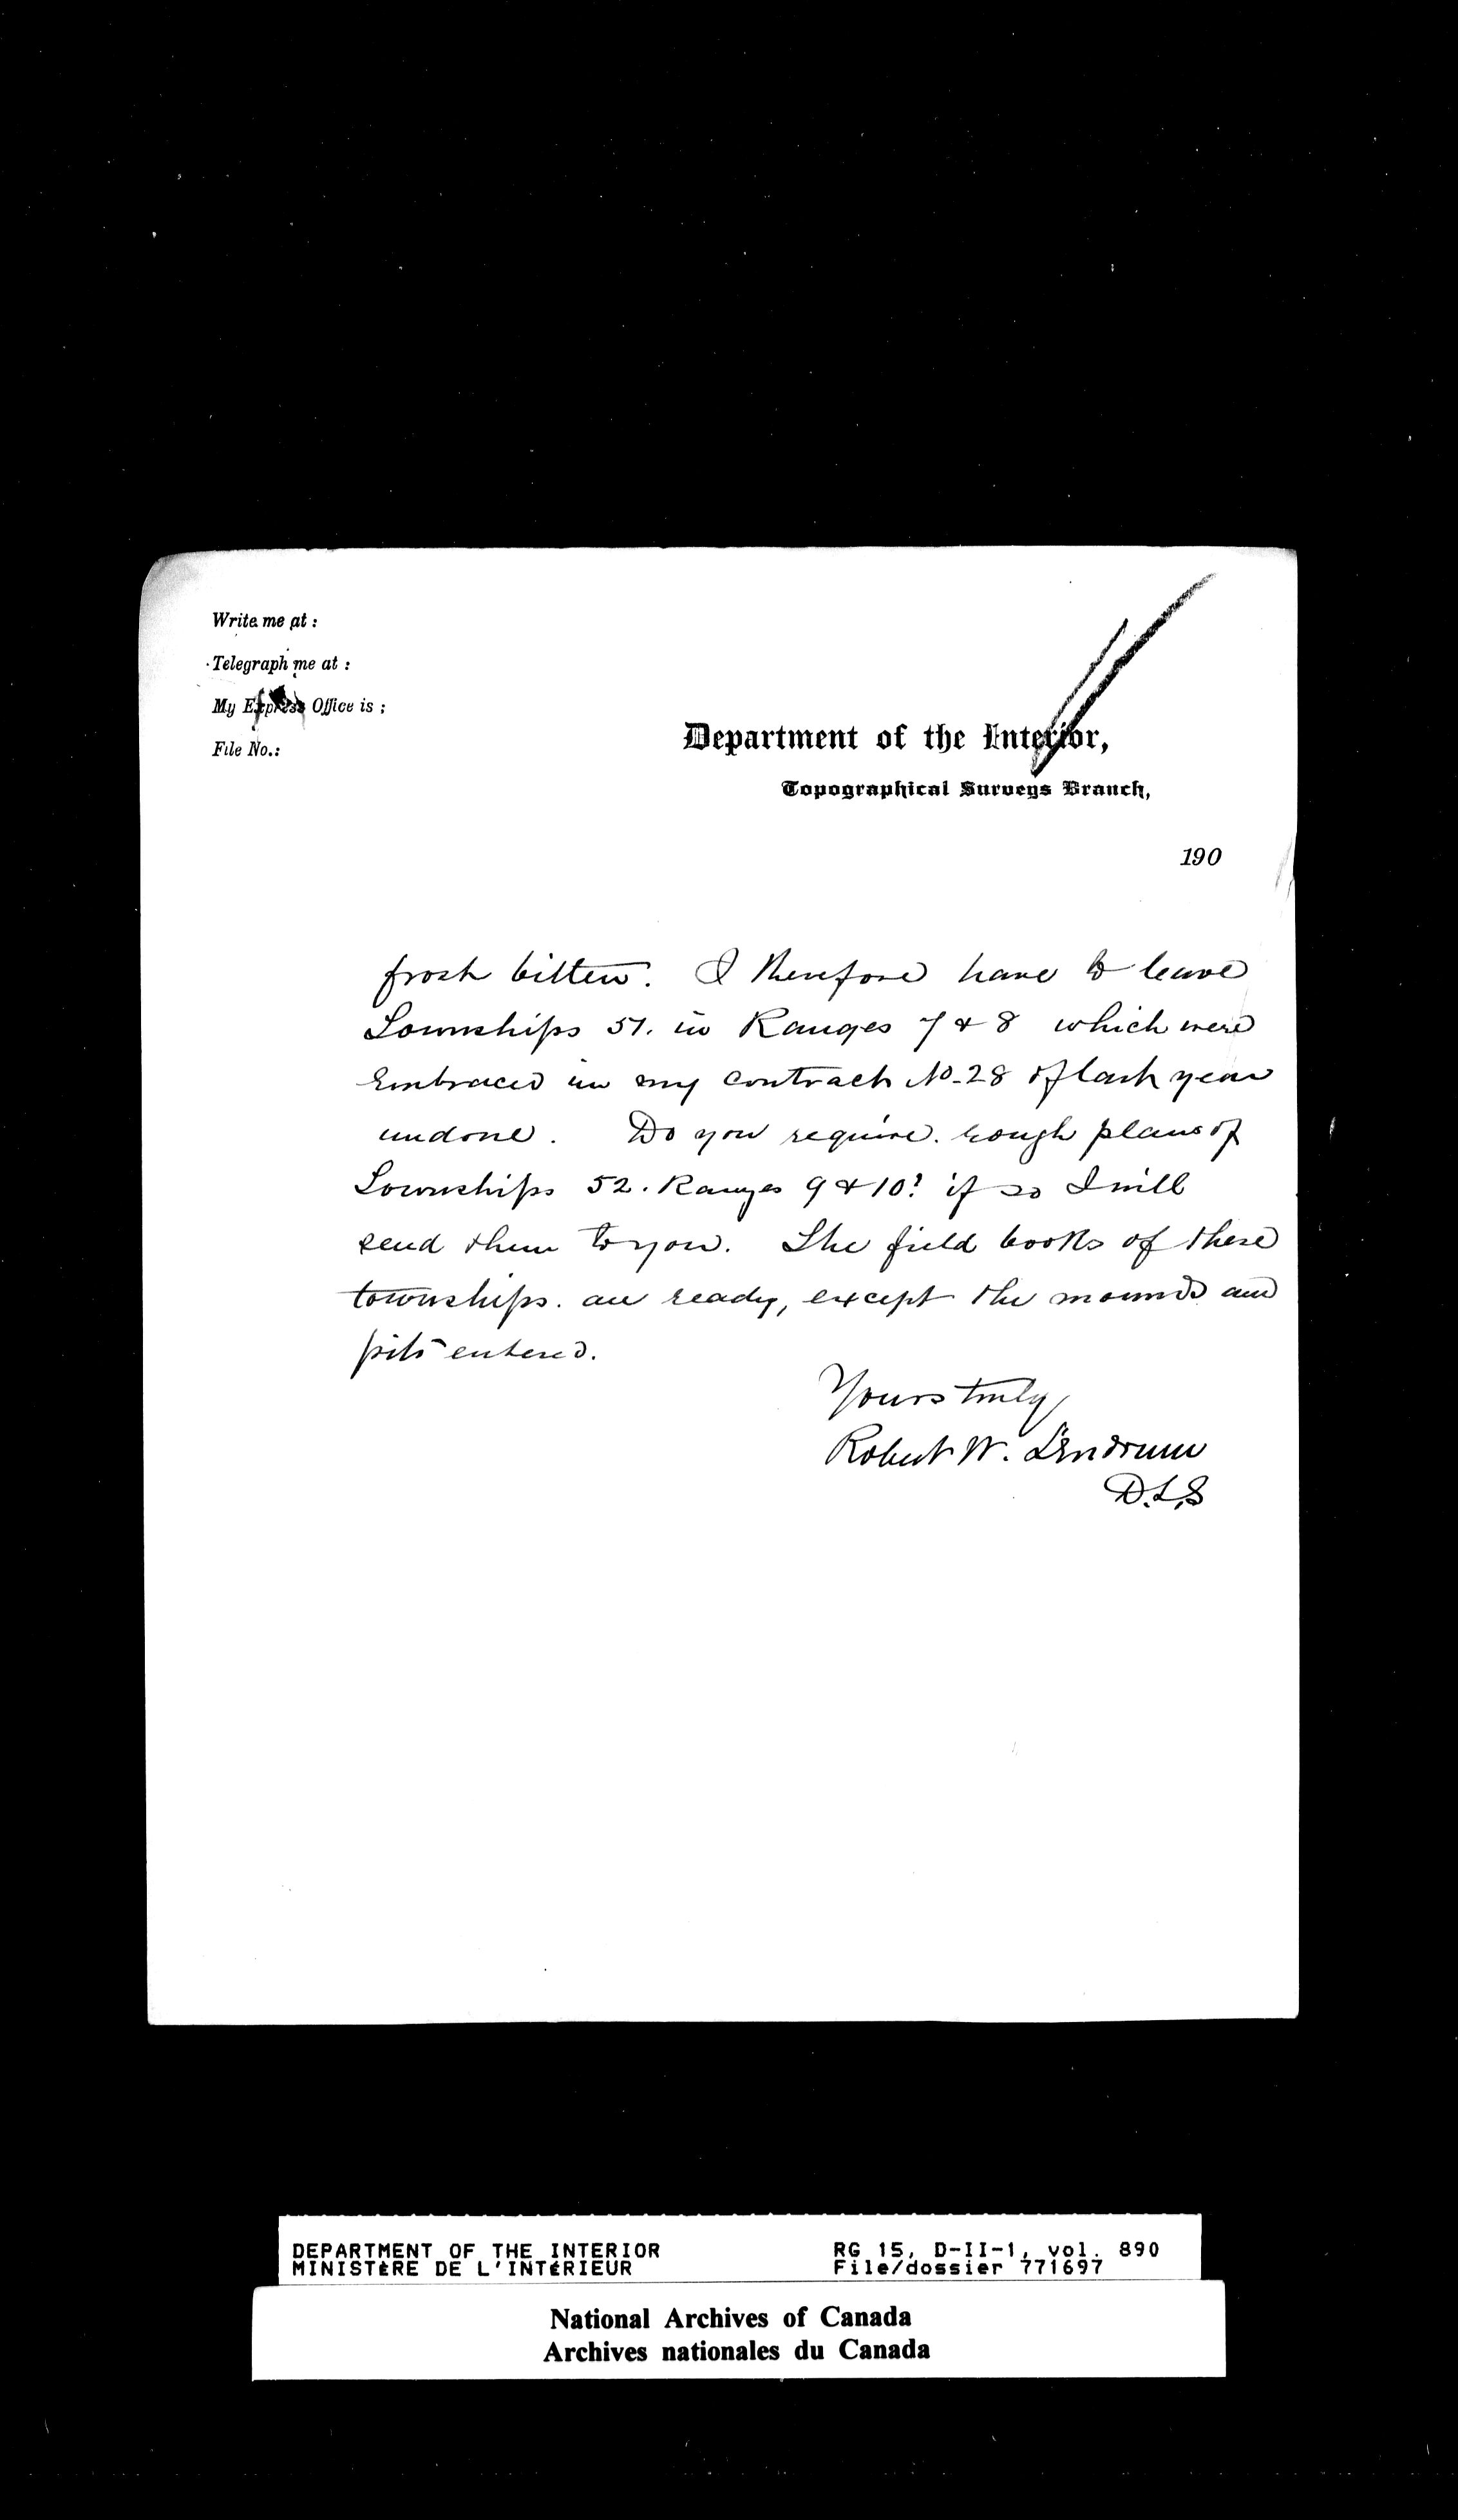 Write me at :
Telegraph me at :
My Express Office is ;
File No.:
Department of the Interior,
Topographical Surveys Branch,
190
frost bitten. I therefore have to leave
Townships 51. in Ranges 7 & 8 which were
Embraced in my contract No. 28 of last year
undone. Do you require. rough plans of
Townships 52. Ranges 9 & 10? if so I will
send them to you. The field books of these
townships. are ready, except the mounds and
pits entered.
Yours truly
Robert W. Lendrum
D.L.S
DEPARTMENT OF THE INTERIOR RG 15, D-II-1, vol. 890
MINISTÈRE DE L'INTÉRIEUR File/dossier 771697
National Archives of Canada
Archives nationales du Canada